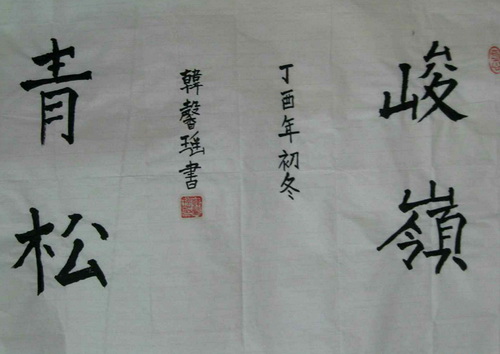 峻嶺
丁酉年初冬
韓馨瑶書
青松